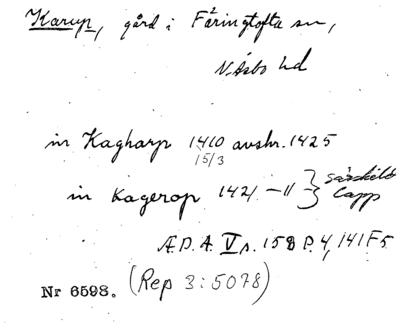 Karup, gård i Färingtofta sn,
N. Åsbo hd
in Kagharp 1410 avskr. 1425
15/3
in Kagerop 1421 –"– } särskilt
Capp
Æ.D.A. V s. 158 P. 4, 141 F5
Nr 6598. (Rep 3:5078)